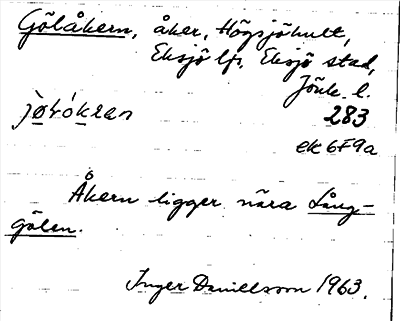 Gölåkern, åker, Högsjöhult,
Eksjö lfs. Eksjö stad,
Jönk. l.
283
ek 6F9a
Åkern ligger nära Lång-
gölen.
Inger Danielsson 1963.